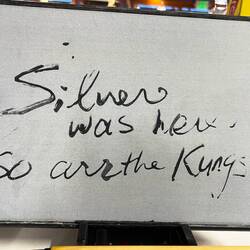 Silver
was here.
So are the Kungs